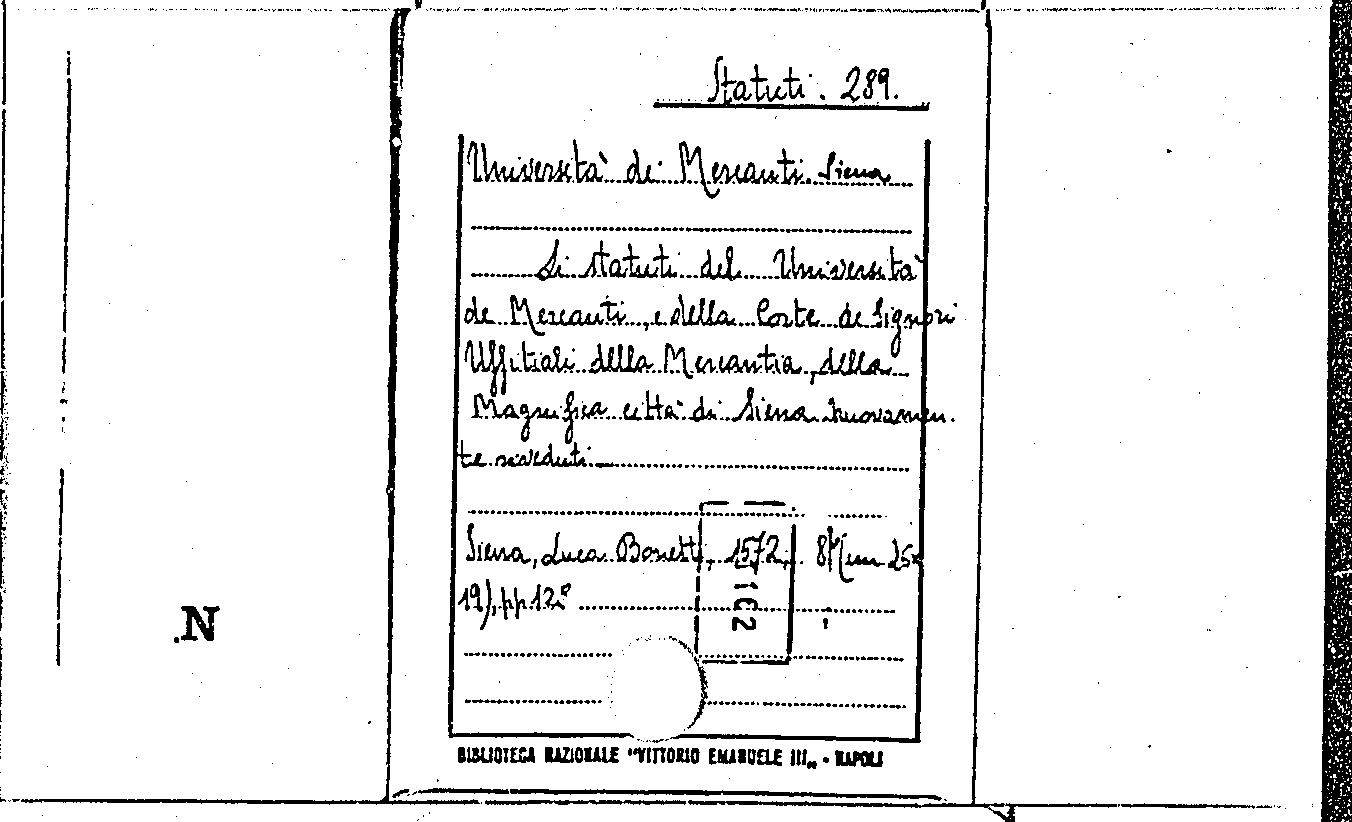 Statuti. 289.
Università dei Mercanti. Siena
Li statuti del Università
de Mercanti, e della Corte de Signori
Uffitiali della Mercantia, della
Magnifica città di Siena. nuovamen
te riveduti
Siena, Luca Bonetti, 1572, 8º (cm 25x
19), pp.
N
BIBLIOTECA NAZIONALE "VITTORIO EMANUELE III" - NAPOLI